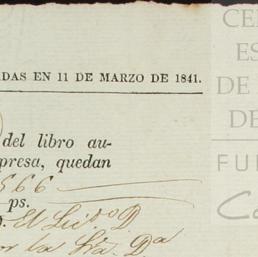 DAS EN 11 DE MARZO DE 1841.
del libro au-
presa, quedan
566
ps.
El Lic.do D.
por la Sra. Da
CE
ES
DE
DE
FU
Ca